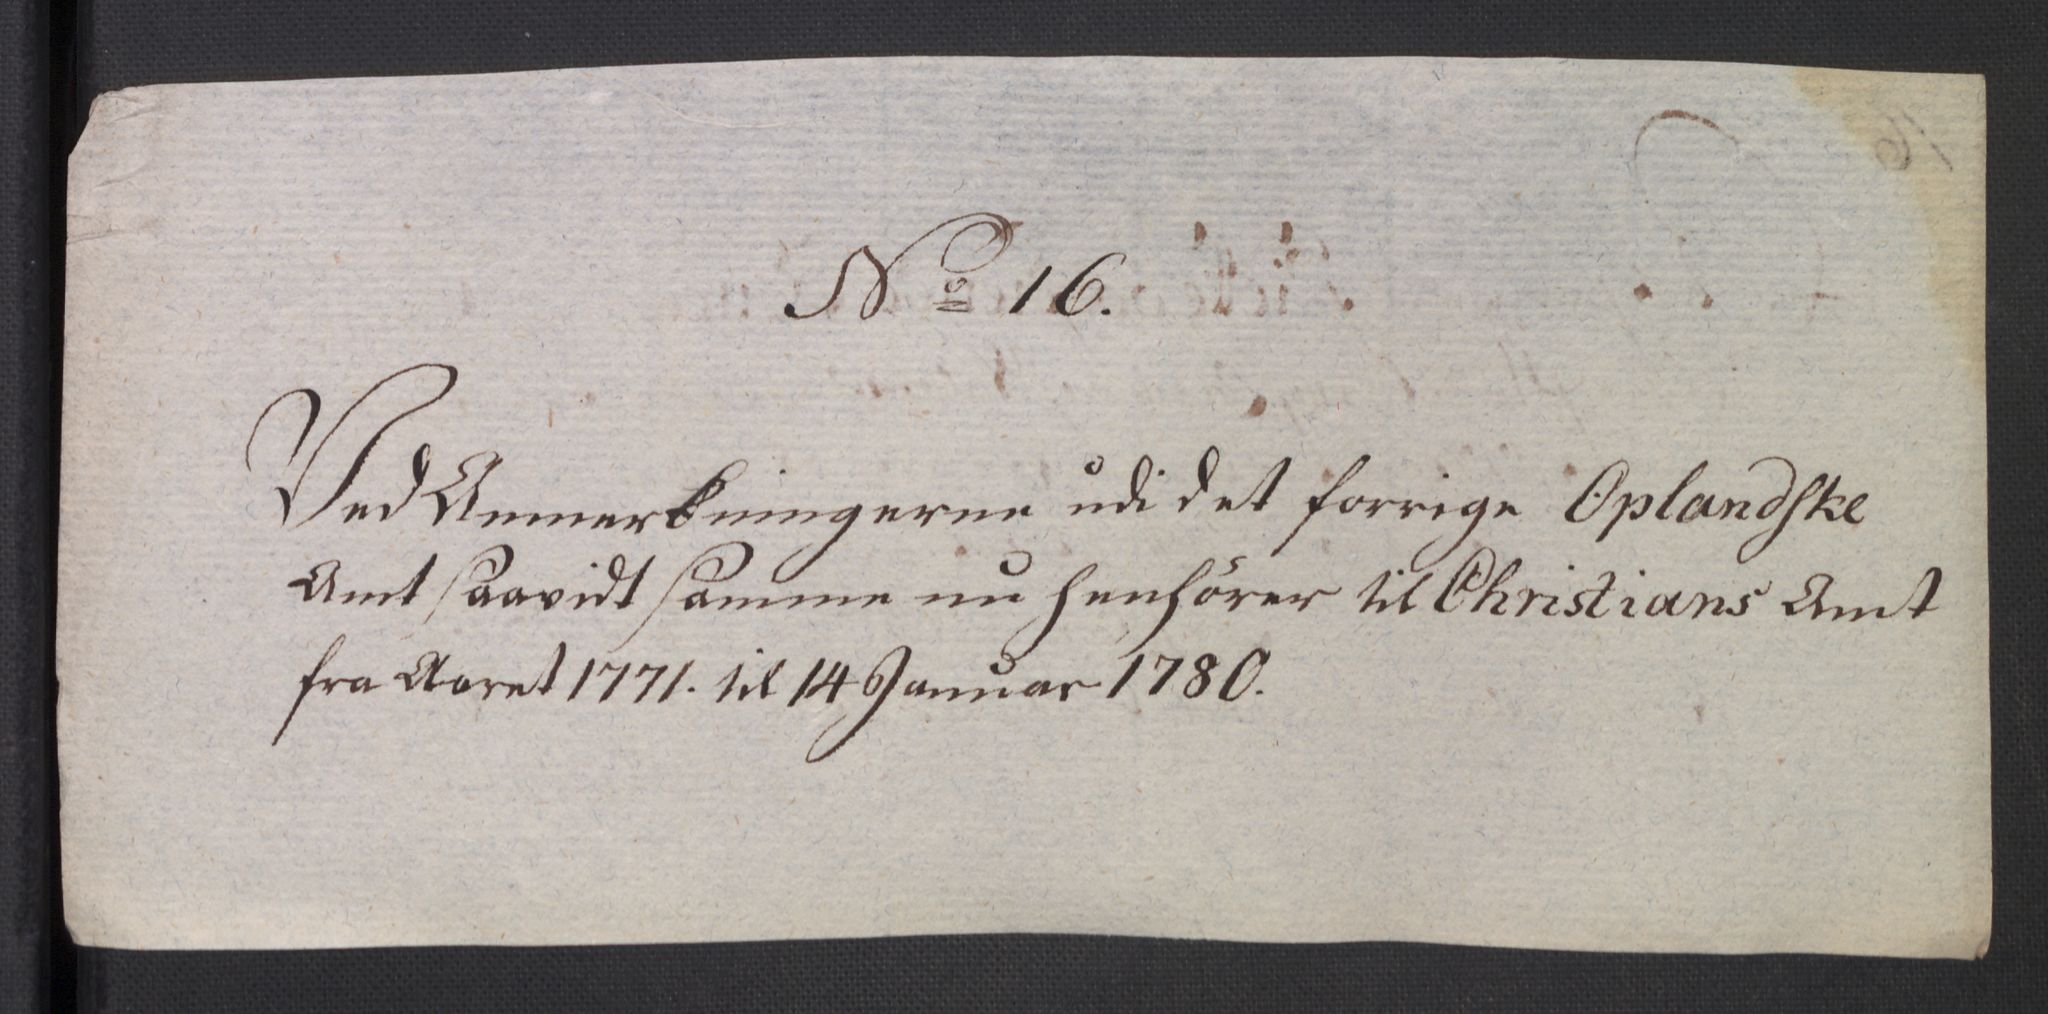 No 16.
Ved Anmerkningerne udi det forrige Oplandske
Amt saavidt samme nu henhörer til Christians Amt
fra Aaret 1771. til 14 Januar 1780.